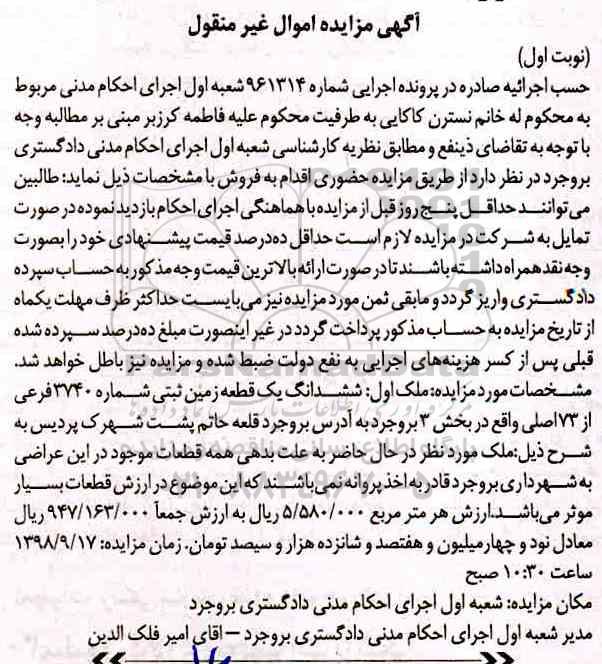 آگهی مزایده اموال غیر منقول
(نوبت اول)
حسب اجرائیه صادره در پرونده اجرایی شماره ۹۶۱۳۱۴ شعبه اول اجرای احکام مدنی مربوط
به محکوم له خانم نسترن کاکایی به طرفیت محکوم علیه فاطمه کرزبر مبنی بر مطالبه وجه
با توجه به تقاضای ذینفع و مطابق نظریه کارشناسی شعبه اول اجرای احکام مدنی دادگستری
بروجرد در نظر دارد از طریق مزایده حضوری اقدام به فروش با مشخصات ذیل نماید: طالبین
می‌توانند حداقل پنج روز قبل از مزایده با هماهنگی اجرای احکام بازدید نموده در صورت
تمایل به شرکت در مزایده لازم است حداقل ده‌درصد قیمت پیشنهادی خود را بصورت
وجه نقد همراه داشته باشند تا در صورت ارائه بالاترین قیمت وجه مذکور به حساب سپرده
دادگستری واریز گردد و مابقی ثمن مورد مزایده نیز می‌بایست حداکثر ظرف مهلت یکماه
از تاریخ مزایده به حساب مذکور پرداخت گردد در غیر اینصورت مبلغ ده‌درصد سپرده شده
قبلی پس از کسر هزینه‌های اجرایی به نفع دولت ضبط شده و مزایده نیز باطل خواهد شد.
مشخصات مورد مزایده: ملک اول: ششدانگ یک قطعه زمین ثبتی شماره ۳۷۴۰ فرعی
از ۷۳ اصلی واقع در بخش ۳ بروجرد به آدرس بروجرد قلعه حاتم پشت شهرک پردیس به
شرح ذیل: ملک مورد نظر در حال حاضر به علت بدهی همه قطعات موجود در این عراضی
به شهرداری بروجرد قادر به اخذ پروانه نمی‌باشند که این موضوع در ارزش قطعات بسیار
موثر می‌باشد. ارزش هر متر مربع ۵/۵۸۰/۰۰۰ ریال به ارزش جمعآ ۹۴۷/۱۶۳/۰۰۰ ریال
معادل نود و چهار میلیون و هفتصد و شانزده هزار و سیصد تومان. زمان مزایده: ۱۳۹۸/۹/۱۷
ساعت ۱۰:۳۰ صبح
مکان مزایده: شعبه اول اجرای احکام مدنی دادگستری بروجرد
مدیر شعبه اول اجرای احکام مدنی دادگستری بروجرد – اقای امیر فلک الدین